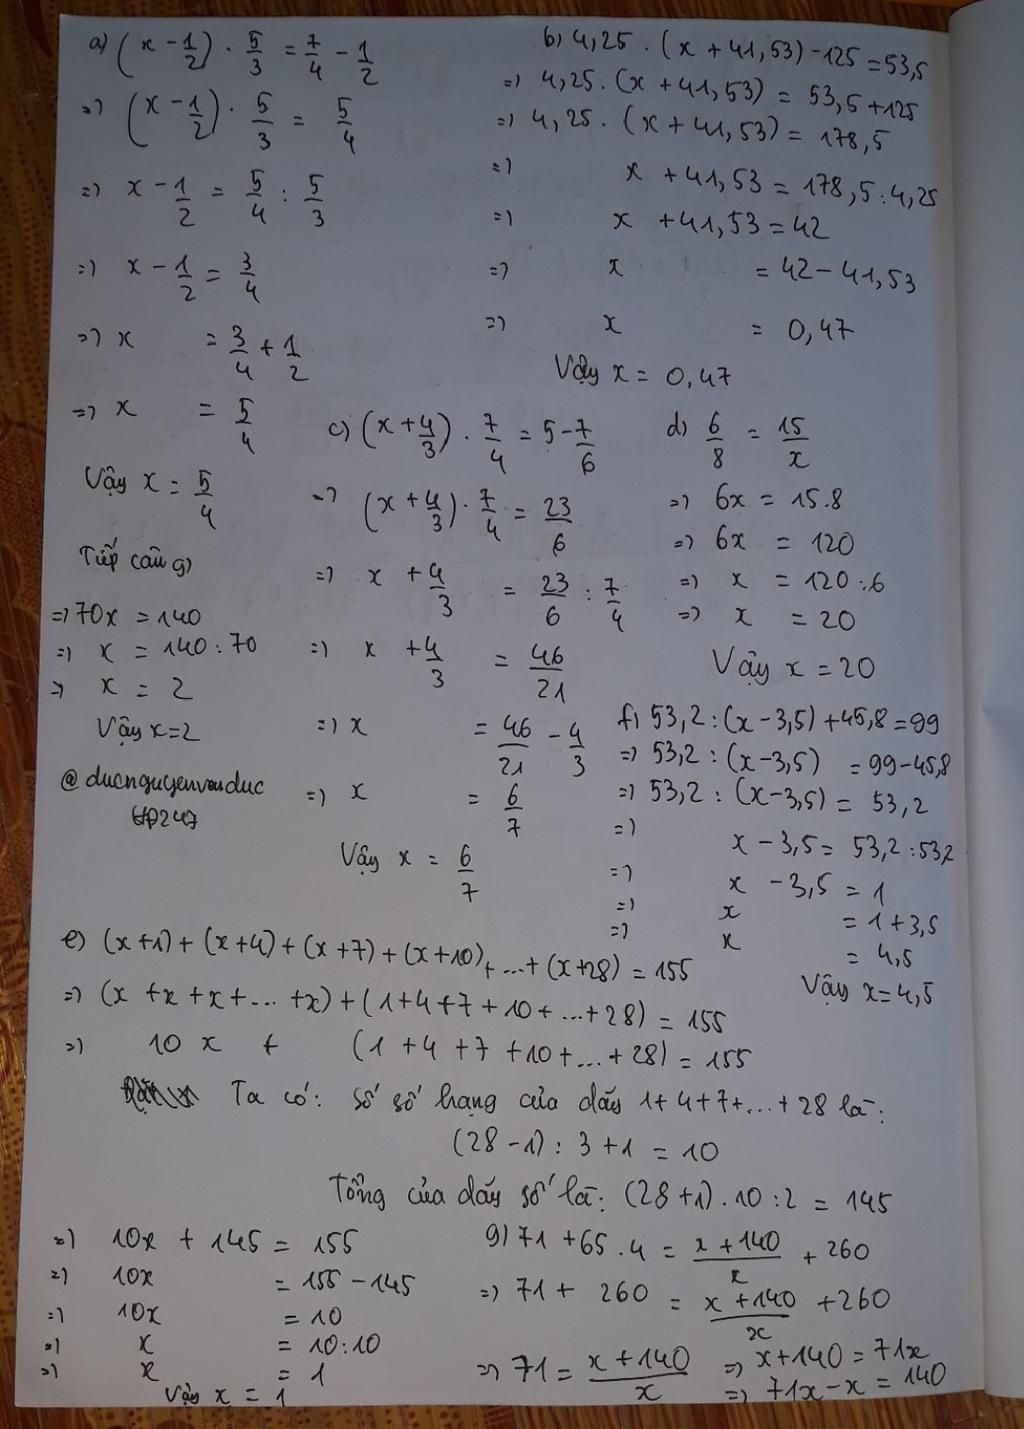 a) (x - 1/2) . 5/3 = 7/4 - 1/2
=> (x - 1/2) . 5/3 = 5/4
=> x - 1/2 = 5/4 : 5/3
=> x - 1/2 = 3/4
=> x = 3/4 + 1/2
=> x = 5/4
Vậy x = 5/4
b) 4,25 . (x + 41,53) - 125 = 53,5
=> 4,25 . (x + 41,53) = 53,5 + 125
=> 4,25 . (x + 41,53) = 178,5
=> x + 41,53 = 178,5 : 4,25
=> x + 41,53 = 42
=> x = 42 - 41,53
=> x = 0,47
Vậy x = 0,47
c) (x + 4/3) . 7/4 = 5 - 7/6
=> (x + 4/3) . 7/4 = 23/6
=> x + 4/3 = 23/6 : 7/4
=> x + 4/3 = 46/21
=> x = 46/21 - 4/3
=> x = 6/7
Vậy x = 6/7
d) 6/8 = 15/x
=> 6x = 15.8
=> 6x = 120
=> x = 120 : 6
=> x = 20
Vậy x = 20
Tiếp câu g)
=> 70x = 140
=> x = 140 : 70
=> x = 2
Vậy x = 2
f) 53,2 : (x - 3,5) + 45,8 = 99
=> 53,2 : (x - 3,5) = 99 - 45,8
=> 53,2 : (x - 3,5) = 53,2
=> x - 3,5 = 53,2 : 53,2
=> x - 3,5 = 1
=> x = 1 + 3,5
=> x = 4,5
Vậy x = 4,5
e) (x + 1) + (x + 4) + (x + 7) + (x + 10) + ... + (x + 28) = 155
=> (x + x + x + ... + x) + (1 + 4 + 7 + 10 + ... + 28) = 155
=> 10 x + (1 + 4 + 7 + 10 + ... + 28) = 155
Ta có: số số hạng của dãy 1 + 4 + 7 + ... + 28 là:
(28 - 1) : 3 + 1 = 10
Tổng của dãy số là: (28 + 1) . 10 : 2 = 145
=> 10x + 145 = 155
=> 10x = 155 - 145
=> 10x = 10
=> x = 10 : 10
=> x = 1
Vậy x = 1
g) 71 + 65 . 4 = (x + 140)/x + 260
=> 71 + 260 = (x + 140)/x + 260
=> 71 = (x + 140)/x => x + 140 = 71x
=> 71x - x = 140